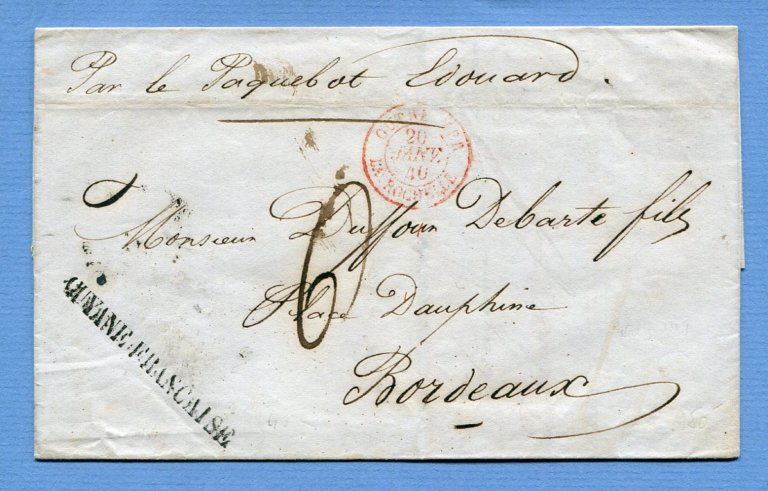 Par le Paquebot Edouard.
OUTRE-MER
20
JANV.
40
LA ROCHELLE
Monsieur Duffour Debarte fils
6
Place Dauphine
Bordeaux
GUYANE-FRANÇAISE